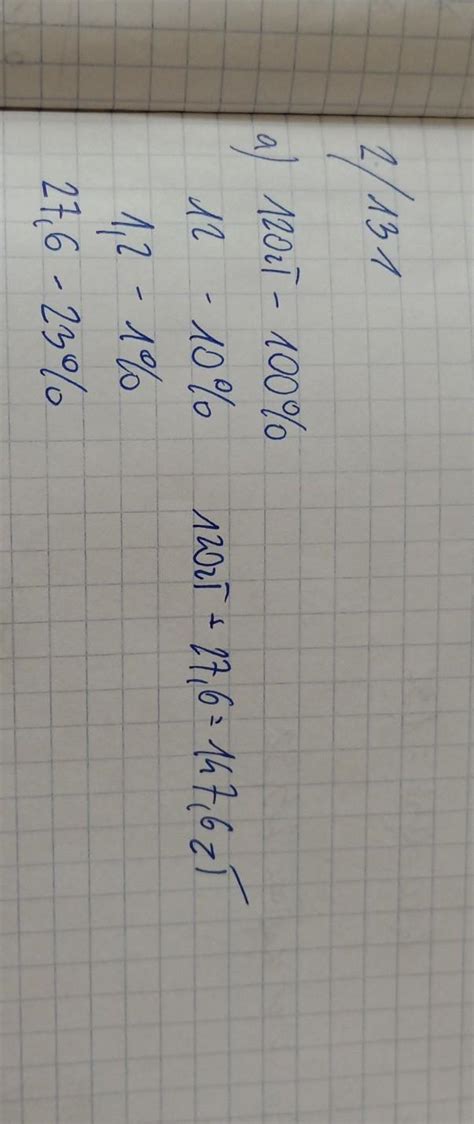 2/131
a) 120zł - 100%
12 - 10%
1,2 - 1%
27,6 - 23%
120zł + 27,6 = 147,6 zł